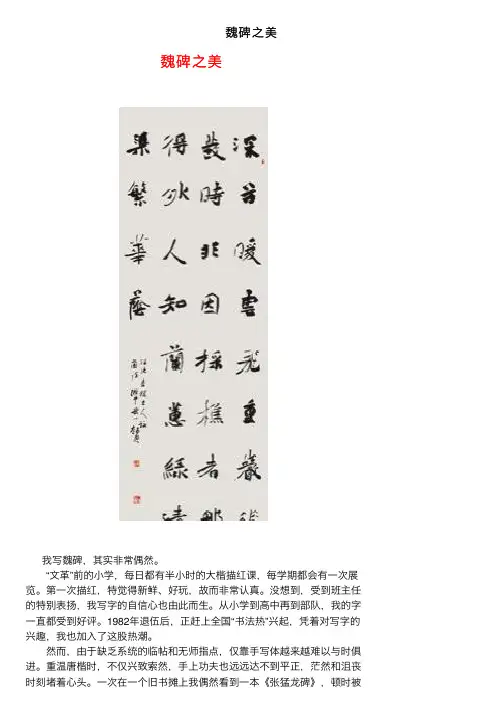 魏碑之美
魏碑之美
深谷暖雲飛重巖
發時非因採樵者那
得外人知蘭蕙綠清
渠繁華蔭
我写魏碑，其实非常偶然。
“文革”前的小学，每日都有半小时的大楷描红课，每学期都会有一次展
览。第一次描红，特觉得新鲜、好玩，故而非常认真。没想到，受到班主任
的特别表扬，我写字的自信心也由此而生。从小学到高中再到部队，我的字
一直都受到好评。1982年退伍后，正赶上全国“书法热”兴起，凭着对写字的
兴趣，我也加入了这股热潮。
然而，由于缺乏系统的临帖和无师指点，仅靠手写体越来越难以与时俱
进。重温唐楷时，不仅兴致索然，手上功夫也远远达不到平正，茫然和沮丧
时刻堵着心头。一次在一个旧书摊上我偶然看到一本《张猛龙碑》，顿时被